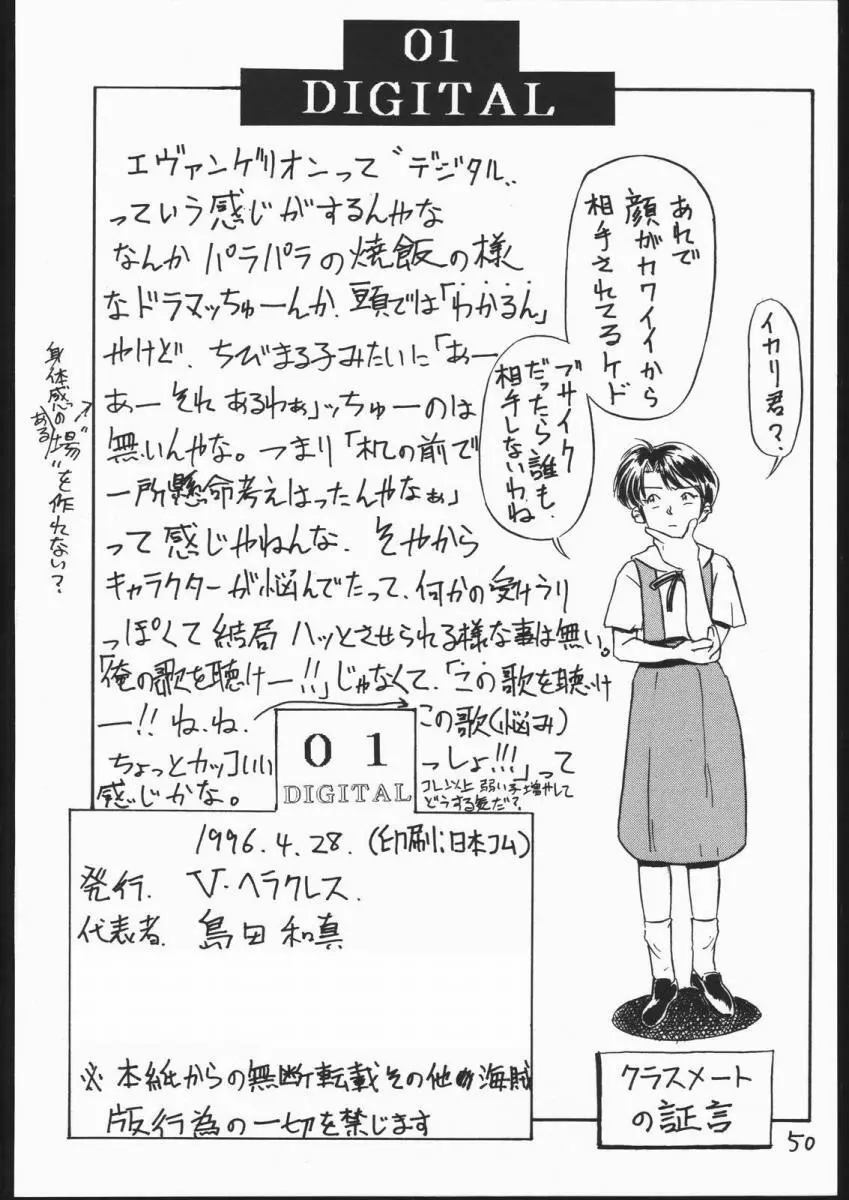 01
DIGITAL
エヴァンゲリオンって〝デジタル〟
っていう感じがするんやな
なんかパラパラの焼飯の様
なドラマッちゅーんか、頭では「わかるん」
やけど、ちびまる子みたいに「あぁー
あー それ あるわぁ」ッちゅーのは
無いんやな。つまり「机の前で
一所懸命考えはったんやなぁ」
って感じやねんな、そやから
キャラクターが悩んでたって、何かの受けうり
っぽくて結局 ハッとさせられる様な事は無い。
「俺の歌を聴けー!!」じゃなくて、「この歌を聴け
ー!! ね、ね、 この歌(悩み)
ちょっとカッコいい っしょ!!!」って
感じかな。
コレ以上 弱い子増やして
どうする気だ?
身体感の
ある
〝場〟を作れない?
あれで
顔がカワイイから
相手されてるケド
ブサイク
だったら誰も
相手しないわね
イカリ君?
01
DIGITAL
1996.4.28.(印刷;日本コム)
発行. V・ヘラクレス.
代表者. 島田和真
※本紙からの無断転載その他の海賊
版行為の一切を禁じます
クラスメート
の証言
50